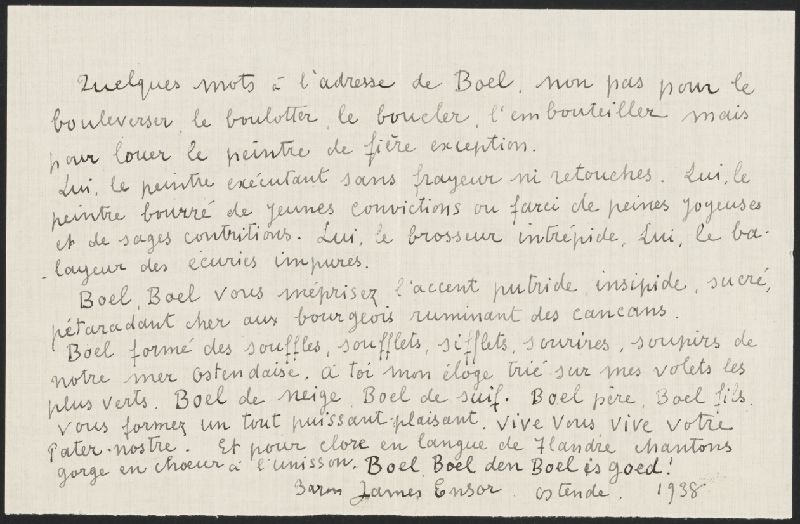 Quelques mots à l'adresse de Boel, non pas pour le
bouleverser, le boulotter, le boucler, l'embouteiller mais
pour louer le peintre de fière exception.
Lui, le peintre exécutant sans frayeur ni retouches. Lui, le
peintre bourré de jeunes convictions ou farci de peines joyeuses
et de sages contritions. Lui, le brosseur intrépide, Lui, le ba-
layeur des écuries impures.
Boel, Boel vous méprisez l'accent putride, insipide, sucré,
pétaradant cher aux bourgeois ruminant des cancans.
Boel formé des souffles, soufflets, sifflets, sourires, soupirs de
notre mer ostendaise. à toi mon éloge trié sur mes volets les
plus verts. Boel de neige, Boel de suif. Boel père, Boel fils
vous formez un tout puissant-plaisant. Vive vous vive votre
Pater-nostre. Et pour clore en langue de Flandre chantons
gorge en chœur à l'unisson. Boel, Boel den Boel is goed!
Baron James Ensor. Ostende. 1938